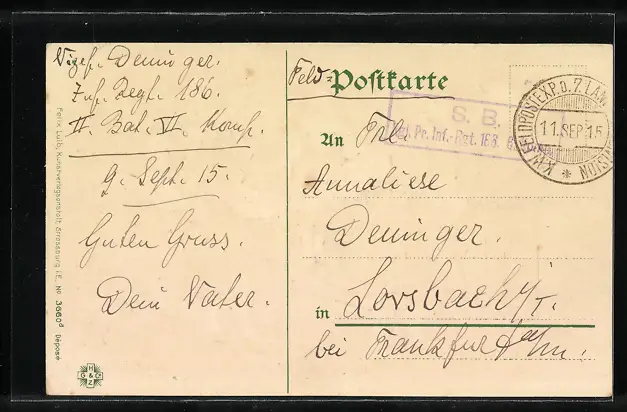 Vizef. Deninger.
Inf. Regt. 186.
II. Bat. VI. Komp.
9. Sept. 15.
Guten Gruss.
Dein Vater.
Felix Luib, Kunstverlagsanstalt, Strassburg i.E. No. 3660d Déposé
H G & Co Z
Feld-Postkarte
S. B.
Kgl. Pr. Inf.-Rgt. 186.
K.W. FELDPOSTEXP. D. 7. LAN
11. SEP. 15
An Frl.
Annaliese
Deninger.
in Lorsbach i/T.
bei Frankfurt a/m.